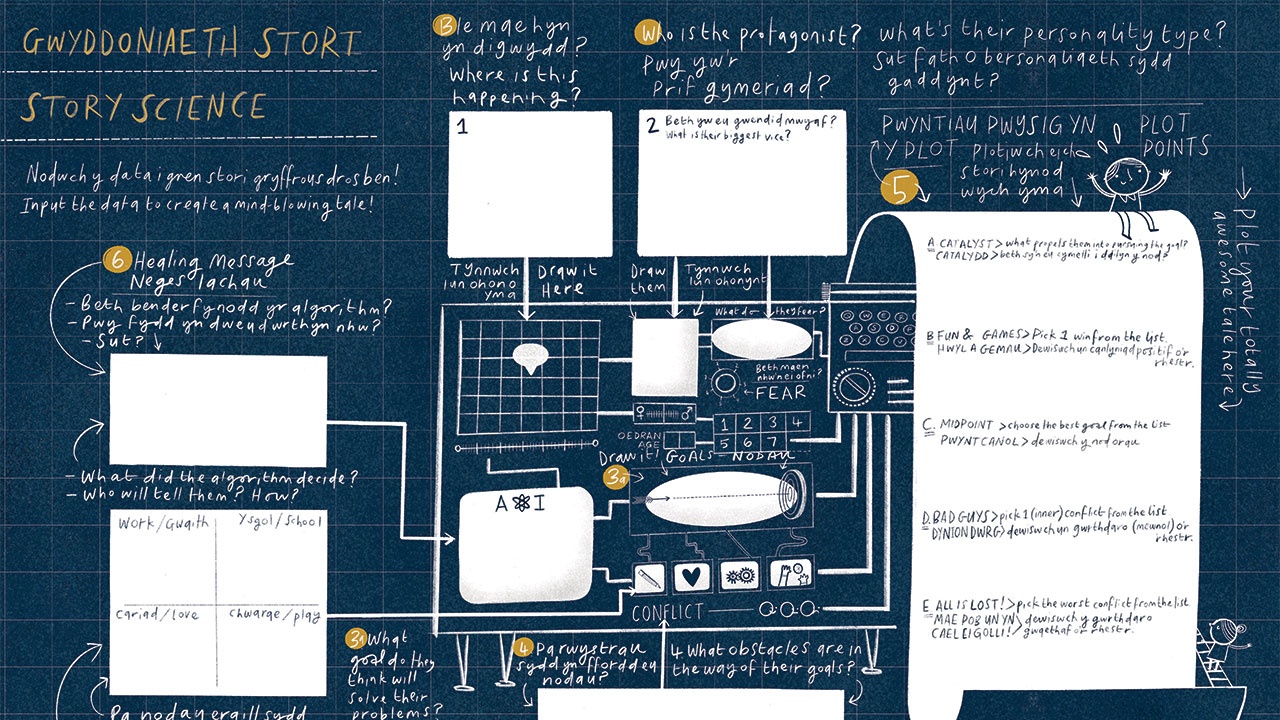 GWYDDONIAETH STORI
STORY SCIENCE
Nodwch y data i greu stori gryffrous dros ben!
Input the data to create a mind-blowing tale!
Ble mae hyn
yn digwydd?
Where is this
happening?
1
Tynnwch
lun ohono
yma
Draw it
Here
Who is the protagonist?
Pwy yw'r
Prif gymeriad?
2 Beth yw eu gwendid mwyaf?
What is their biggest vice?
Draw
them
Tynnwch
lun ohonynt
What's their personality type?
Sut fath o bersonaliaeth sydd
gaddynt?
PWYNTIAU PWYSIG YN
Y PLOT
PLOT
POINTS
Plotiwch eich
stori hynod
wych yma
5
Plot your totally
awesome tale here
A. CATALYST > what propels them into pursuing the goal?
CATALYDD > beth sy'n eu cymelli i ddilyn y nod?
B FUN & GAMES > Pick 1 win from the list.
HWYL A GEMAU > Dewiswch un canlyniad positif o'r
rhestr.
C. MIDPOINT > choose the best goal from the list
PWYNT CANOL > dewiswch y nod orau
D. BAD GUYS > pick 1 (inner) conflict from the list
DYNION DWRG > dewiswch un gwrthdaro (mewnol) o'r
rhestr.
E. ALL IS LOST! > pick the worst conflict from the list
MAE POB UN YN dewiswch y gwrthdaro
CAEL EI GOLLI! > gwaethaf o'r rhestr.
6 Healing Message
Neges Iachau
- Beth benderfynodd yr algorithm?
- Pwy fydd yn dweud wrthyn nhw?
- Sut?
- What did the algorithm decide?
- Who will tell them? How?
Work/Gwaith
Ysgol/School
Cariad/love
Chwarae/play
What do they fear?
Beth maen
nhw'n ei ofni?
FEAR
OEDRAN
AGE
1 2 3 4
5 6 7
Draw it!
GOALS - NODAU
3a
A I
CONFLICT
Q W E R
A S D F
Z X C V
3a What
goal do they
think will
solve their
problems?
4 Pa rwystrau
sydd yn ffordd eu
nodau?
4 What obstacles are in
the way of their goals?
Pa nodau eraill sydd